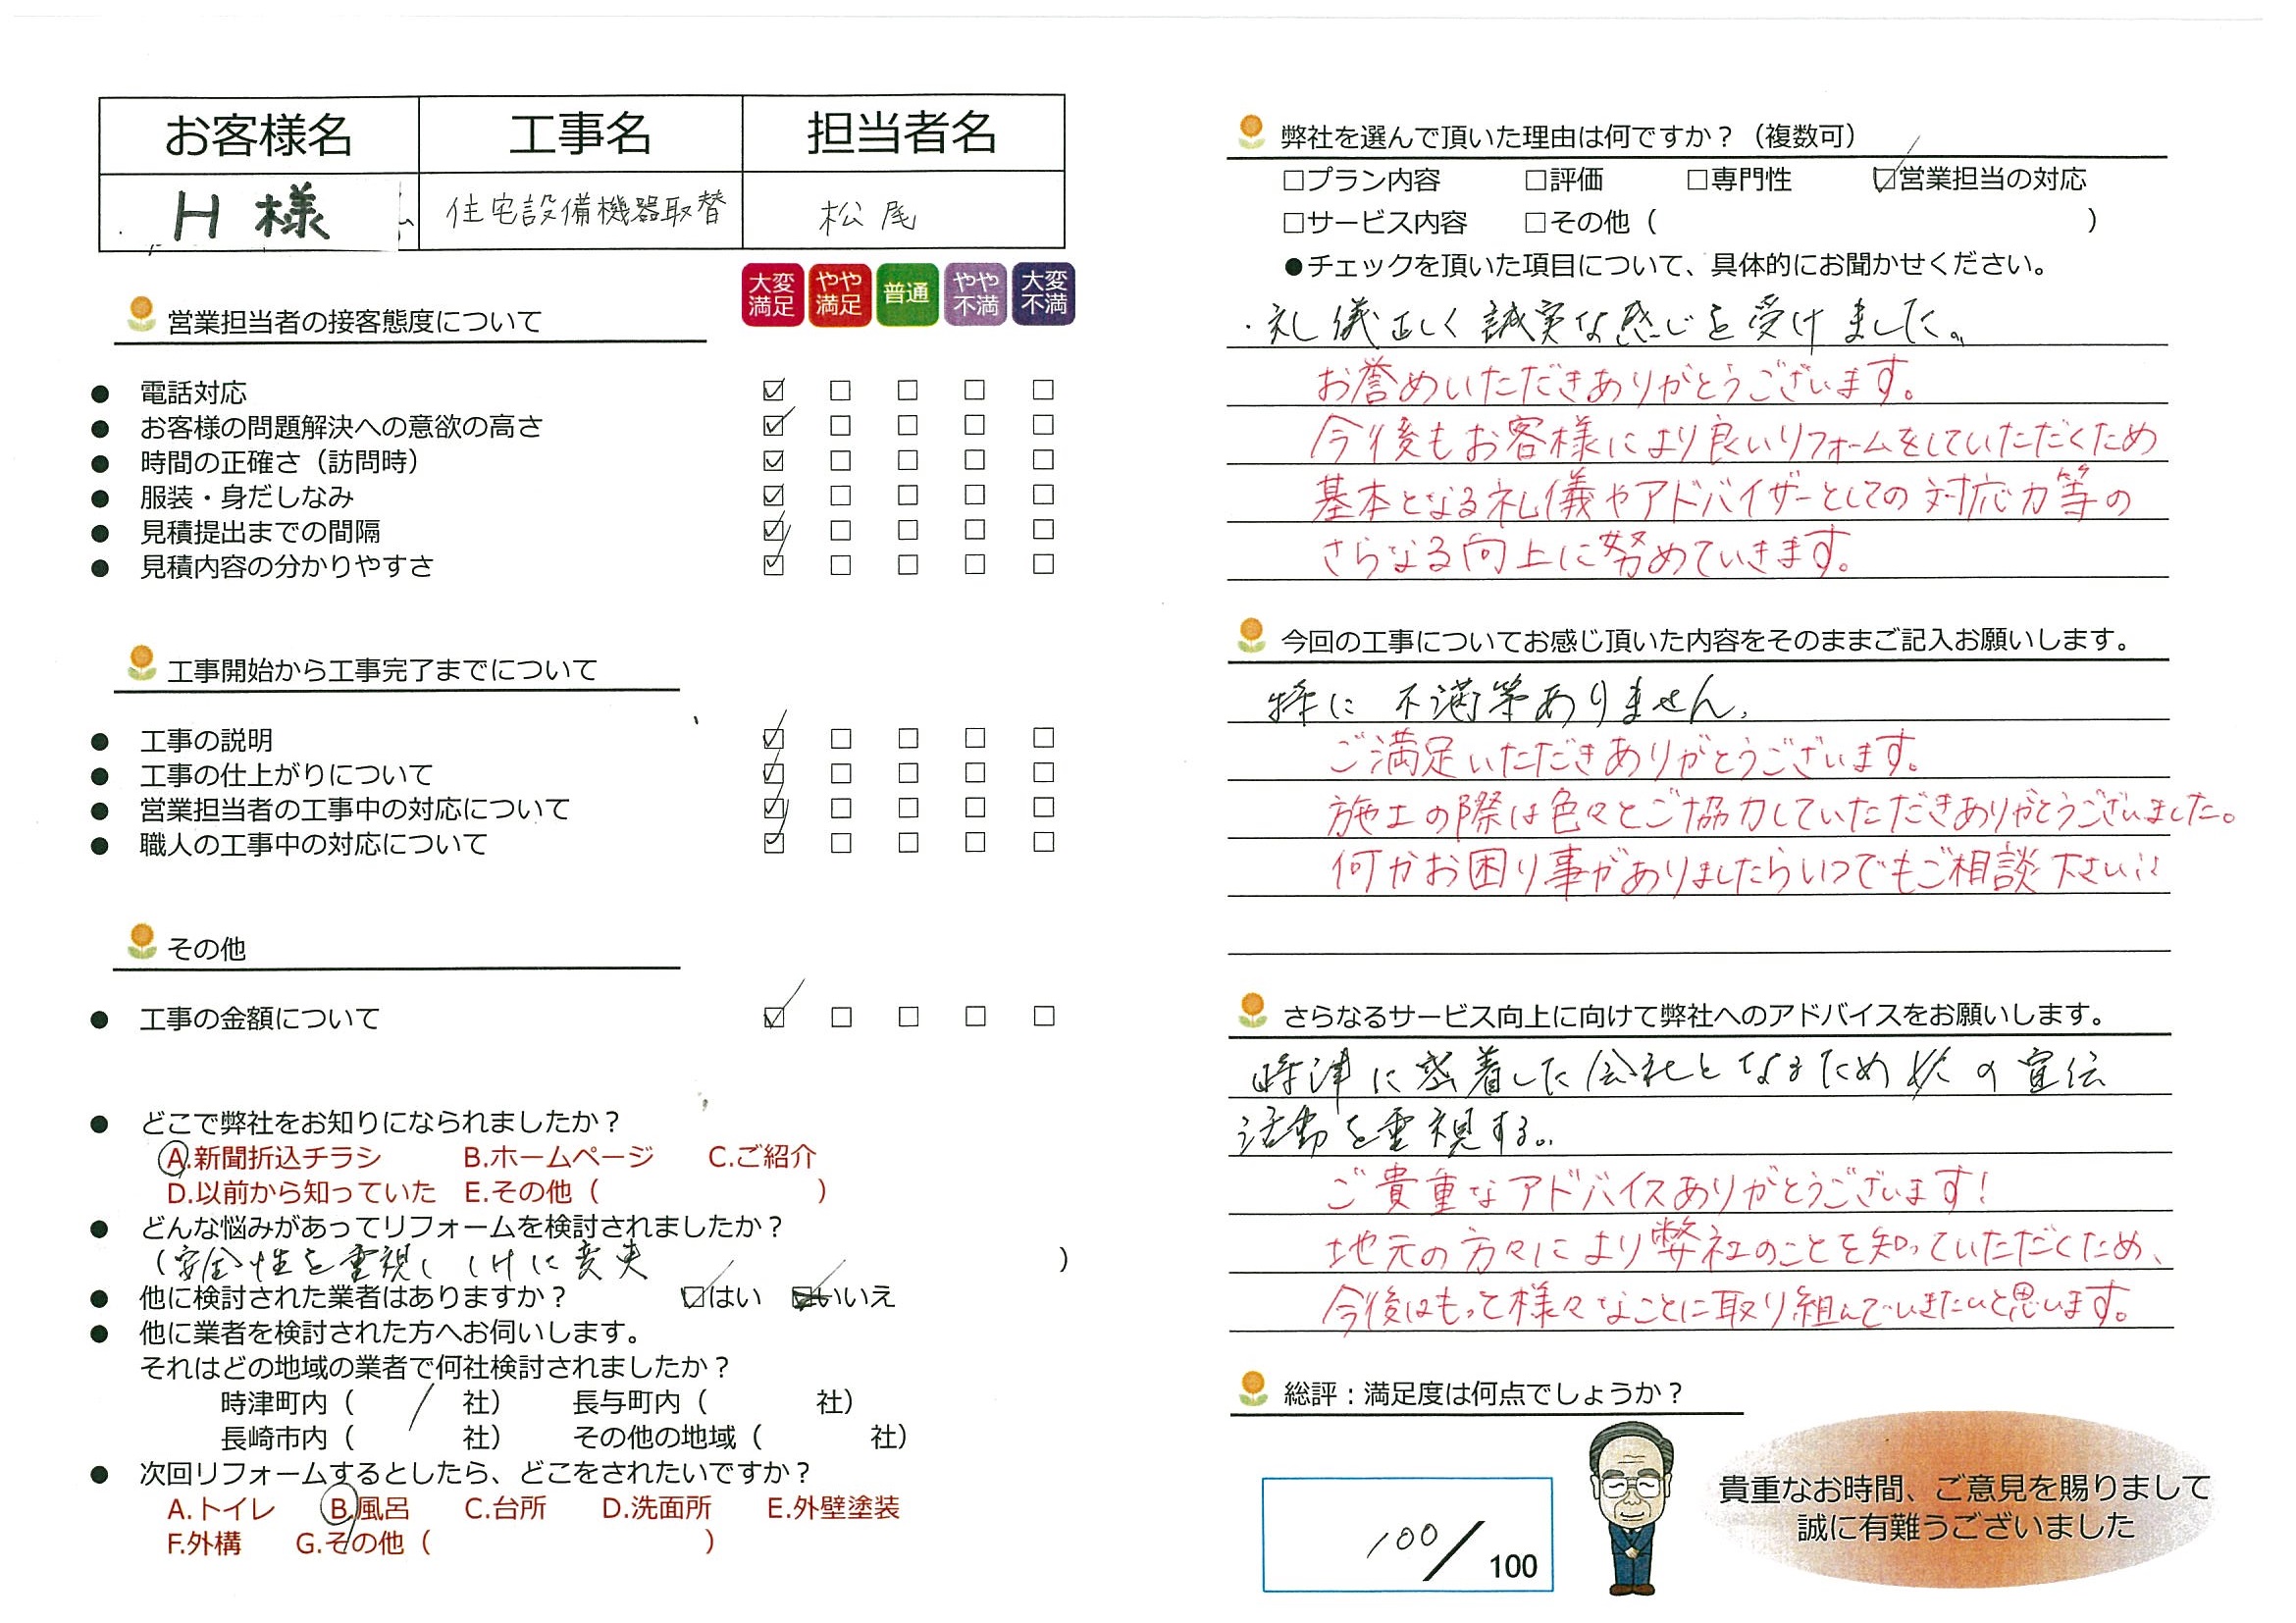 お客様名 工事名 担当者名
H 様 住宅設備機器取替 松尾
大変満足 やや満足 普通 やや不満 大変不満
営業担当者の接客態度について
● 電話対応 ☑ □ □ □ □
● お客様の問題解決への意欲の高さ ☑ □ □ □ □
● 時間の正確さ（訪問時） ☑ □ □ □ □
● 服装・身だしなみ ☑ □ □ □ □
● 見積提出までの間隔 ☑ □ □ □ □
● 見積内容の分かりやすさ ☑ □ □ □ □
工事開始から工事完了までについて
● 工事の説明 ☑ □ □ □ □
● 工事の仕上がりについて ☑ □ □ □ □
● 営業担当者の工事中の対応について ☑ □ □ □ □
● 職人の工事中の対応について ☑ □ □ □ □
その他
● 工事の金額について ☑ □ □ □ □
● どこで弊社をお知りになられましたか？
A.新聞折込チラシ B.ホームページ C.ご紹介
D.以前から知っていた E.その他（ ）
● どんな悩みがあってリフォームを検討されましたか？
（安全性を重視し に変更 ）
● 他に検討された業者はありますか？ ☑はい いいえ
● 他に業者を検討された方へお伺いします。
それはどの地域の業者で何社検討されましたか？
時津町内（ / 社） 長与町内（ 社）
長崎市内（ 社） その他の地域（ 社）
● 次回リフォームするとしたら、どこをされたいですか？
A.トイレ B.風呂 C.台所 D.洗面所 E.外壁塗装
F.外構 G.その他（ ）
弊社を選んで頂いた理由は何ですか？（複数可）
□プラン内容 □評価 □専門性 ☑営業担当の対応
□サービス内容 □その他（ ）
●チェックを頂いた項目について、具体的にお聞かせください。
・礼儀正しく誠実な感じを受けました。
お誉めいただきありがとうございます。
今後もお客様により良いリフォームをしていただくため
基本となる礼儀やアドバイザーとしての対応力等の
さらなる向上に努めていきます。
今回の工事についてお感じ頂いた内容をそのままご記入お願いします。
特に不満等ありません。
ご満足いただきありがとうございます。
施工の際は色々とご協力していただきありがとうございました。
何かお困り事がありましたらいつでもご相談下さい!!
さらなるサービス向上に向けて弊社へのアドバイスをお願いします。
時津に密着した会社となるため の宣伝
活動を重視する。
ご貴重なアドバイスありがとうございます!
地元の方々により弊社のことを知っていただくため、
今後はもっと様々なことに取り組んでいきたいと思います。
総評：満足度は何点でしょうか？
100/100
貴重なお時間、ご意見を賜りまして
誠に有難うございました